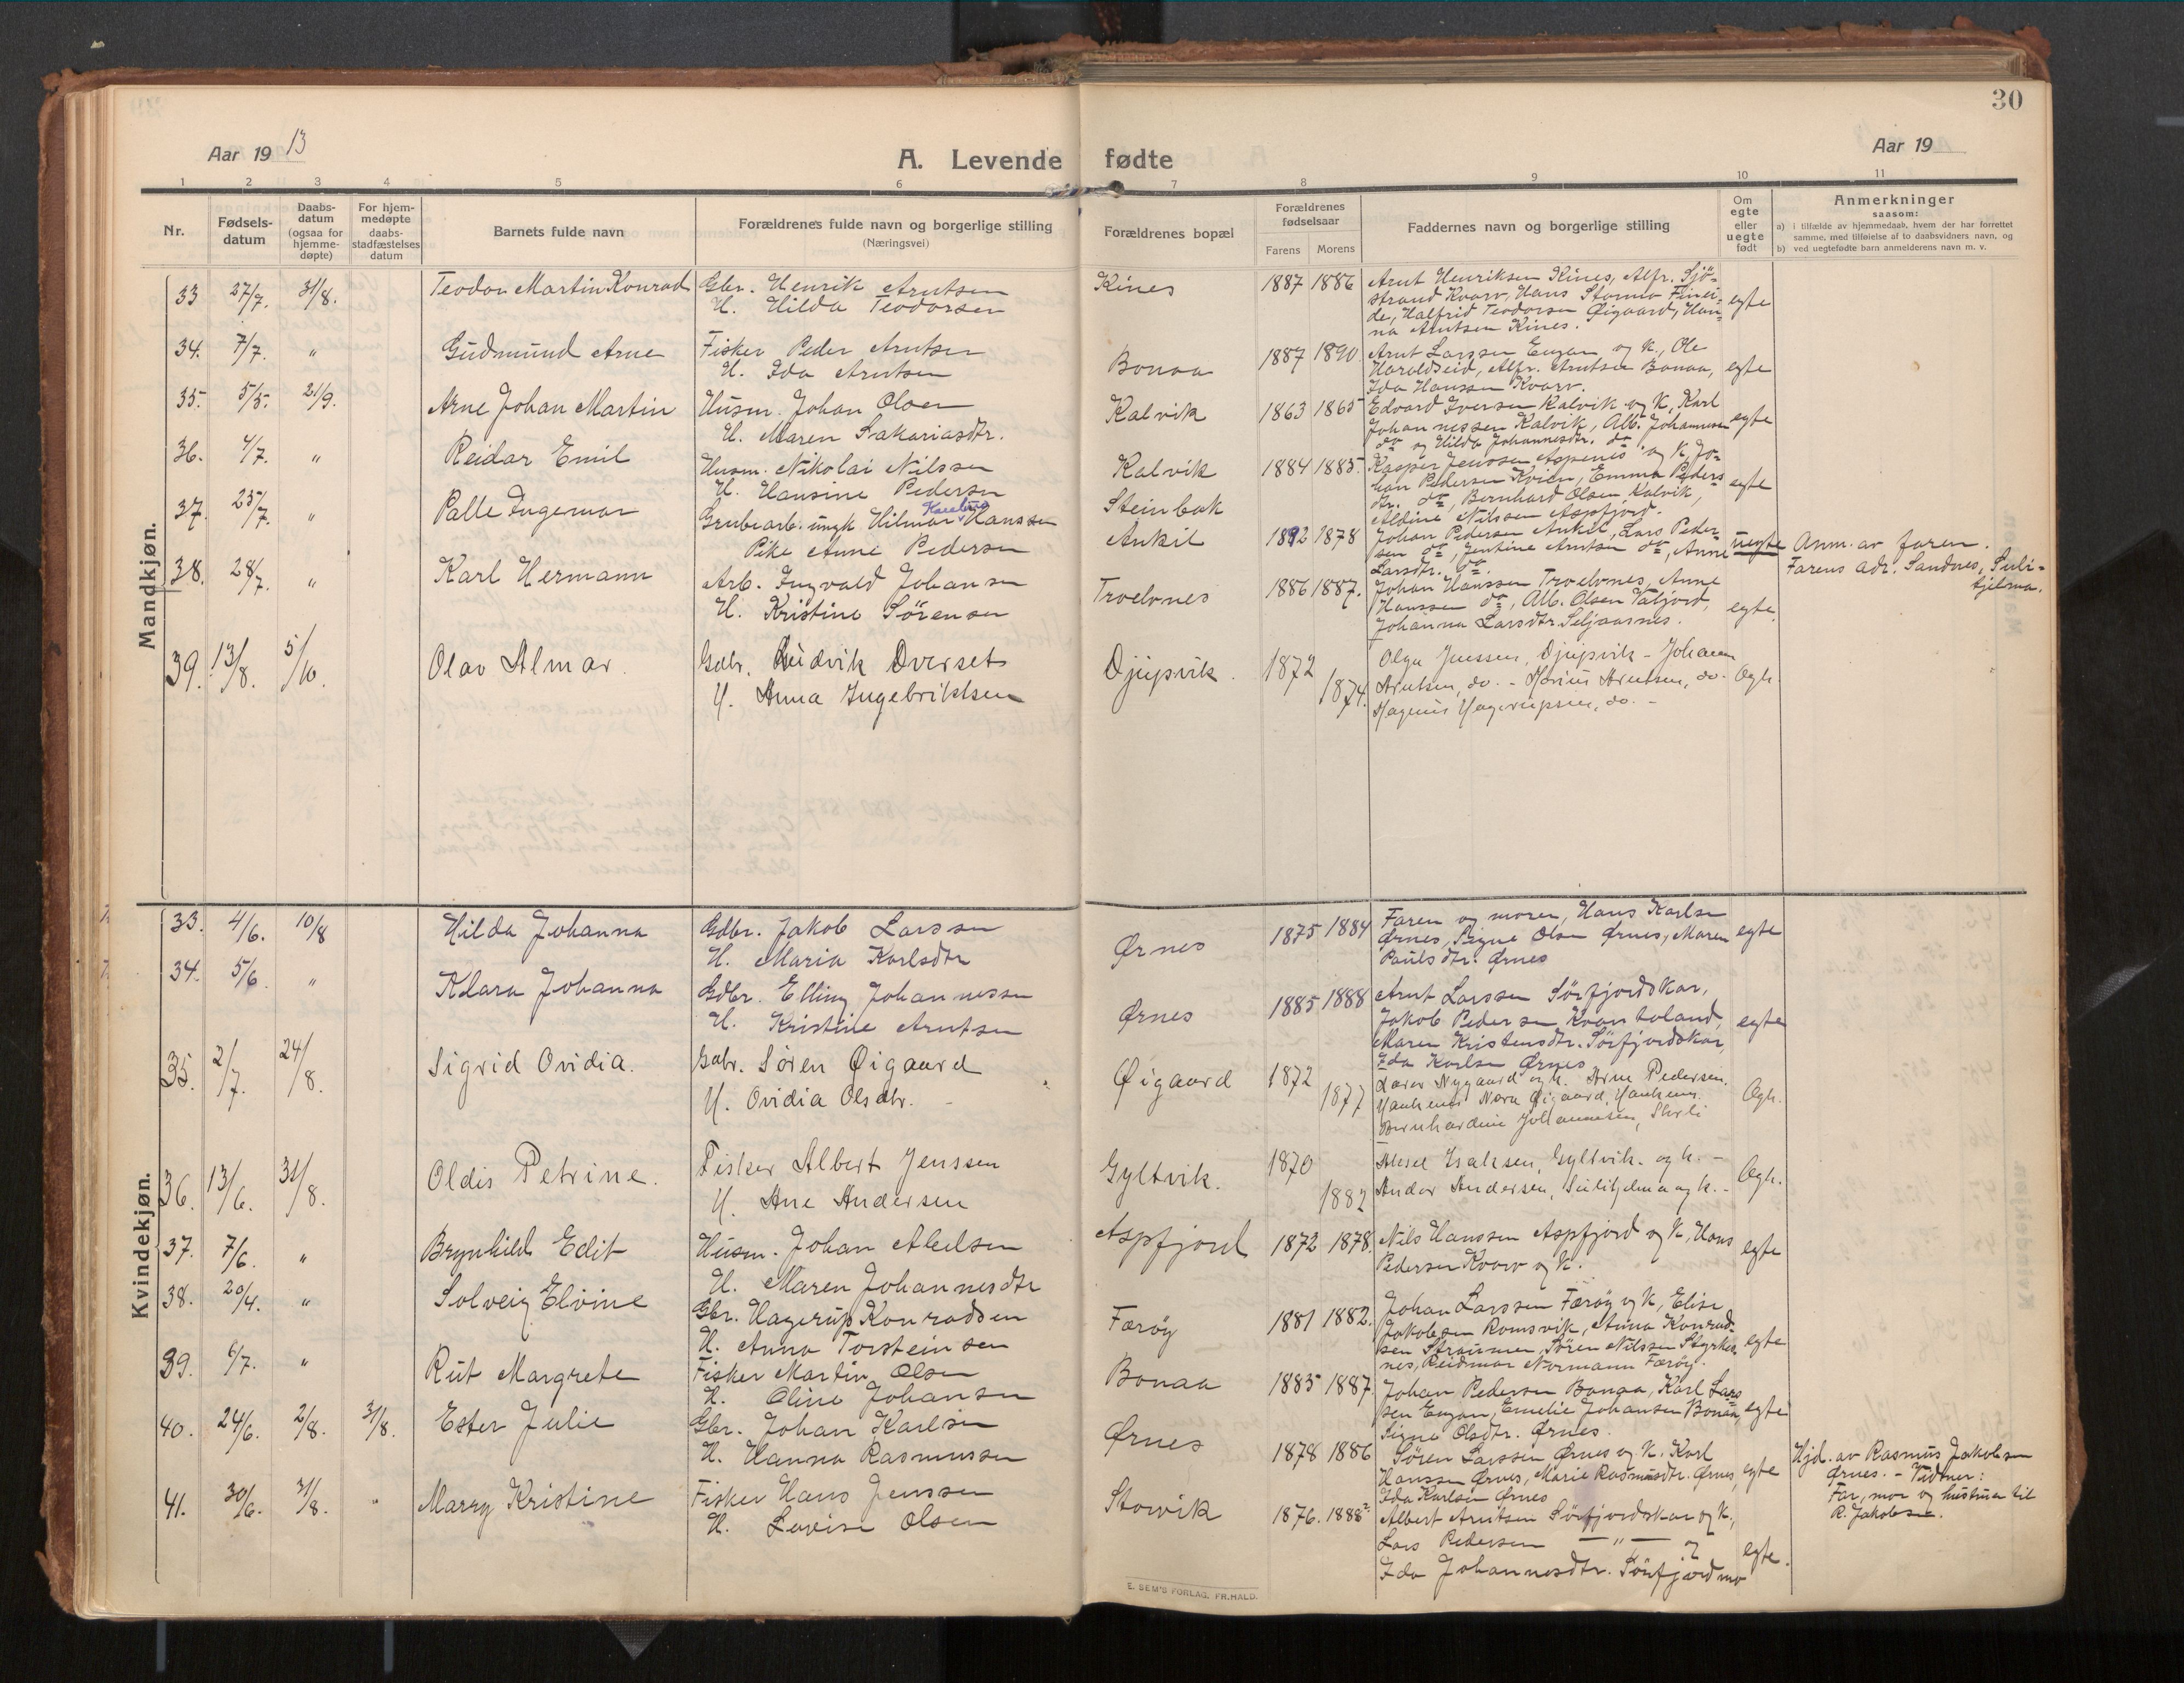 30
Aar 1913
A. Levende fødte
Aar 19
1 2 3 4 5 6 7 8 9 10 11
Nr.
Fødsels-
datum
Daabs-
datum
(ogsaa for
hjemme-
døpte)
For hjem-
medøpte
daabs-
stadfæstelses
datum
Barnets fulde navn
Forældrenes fulde navn og borgerlige stilling
(Næringsvei)
Forældrenes bopæl
Forældrenes
fødselsaar
Farens Morens
Faddernes navn og borgerlige stilling
Om
egte
eller
uegte
født
Anmerkninger
saasom:
a) i tilfælde av hjemmedaab, hvem der har forrettet
samme, med tilføielse af to daabsvidners navn, og
b) ved uegtefødte barn anmelderens navn m. v.
Mandkjøn.
33 27/7. 31/8. Teodor Martin Konrad
Gbr. Henrik Arntsen
H. Hilda Teodorsen
Kines 1887 1886
Arnt Henriksen Kines, Alfr. Sjö-
strand Kvarv, Hans Stormo Finei-
de, Halfrid Teodorsen Øigaard, Han-
na Arntsen Kines.
egte
34. 7/7. " Gudmund Arne
Fisker Peder Arntsen
H. Ida Arntsen
Bonaa 1887 1890.
Arnt Larssen Engan og K., Ole
Haraldseid, Alfr. Arntsen Bonaa,
Ida Hanssen Kvarv.
egte
35. 5/5. 21/9. Arne Johan Martin
Husm. Johan Olsen
H. Maren Sakariasdtr.
Kalvik 1863 1865
Edvard Iversen Kalvik og K, Karl
Johannessen Kalvik, Alb. Johannessen
do og Hilda Johannesdtr. do
egte
36. 4/7. " Reidar Emil
Husm. Nikolai Nilssen
H. Hansine Pedersen
Kalvik 1884 1885.
Kasper Jenssen Aspenes og K, Jo-
han Pedersen Kvien, Emma Peders-
dtr. do, Bernhard Olsen Kalvik,
Aldine Nilssen Aspfjord.
egte
37. 25/7. " Palle Ingemar
Grubearb. ungk Hilmar Hanssen
Pike Anne Pedersen
Steinbak
Ankil 1892 1878
Johan Pedersen Ankil, Lars Peder-
sen do, Jentine Arntsen do, Anne
Larsdtr. do.
uegte
Anm. av faren.
Farens adr. Sandnes, Suli-
tjelma.
38. 28/7. " Karl Hermann
Arb. Ingvald Johansen
H. Kristine Sörensen
Troelvnes 1886 1887.
Johan Hanssen Troelvnes, Anne
Hanssen do, Alb. Olsen Valjord,
Johanna Larsdtr. Seljaasnes.
egte
39. 13/8. 5/10. Olav Almar
Gdbr. Ludvik Dverset
H. Anna Ingebriktsen
Djupvik. 1872 1874.
Olga Jenssen, Djupvik - Johan
Arntsen, do. - Marius Arntsen, do.
Magnus Hagerupsen, do. -
Egte.
Kvindekjøn.
33. 4/6. 10/8 Hilda Johanna
Gdbr. Jakob Larssen
H. Maria Karlsdtr
Ørnes 1875 1884
Faren og moren, Hans Karlsen
Ørnes, Signe Olsen Ørnes, Maren
Paulsdtr. Ørnes
egte
34. 5/6 " Klara Johanna
Gdbr. Elling Johannessen
H. Kristine Arntsen
Ørnes 1885 1888
Arnt Larssen Sörfjordskar,
Jakob Pedersen Kvantoland,
Maren Kristensdtr. Sörfjordskar,
Ida Karlsen Ørnes
egte
35. 2/7. 24/8. Sigrid Ovidia.
Gabr. Søren Øigaard
H. Ovidia Olsdtr. -
Øigaard 1872 1877
Nygaard og h. Arne Pedersen.
Nora Øigaard,
Bernhardine Johannesen,
Egte.
36. 13/6. 31/8. Oldis Petrine.
Fisker Albert Jenssen
H. Ane Andersen
Gyltvik. 1870 1882
Aksel Isaksen, Gyltvik. og h. -
Andor Andersen, Sulitjelma og h. -
Egte.
37. 7/6. " Brynhild Edit
Husm. Johan Abelsen
H. Maren Johannesdtr
Aspfjord 1872 1878.
Nils Hanssen Aspfjord og K, Hans
Pedersen Kvarv og K.
egte
38. 20/4. " Solveig Elvine
Gbr. Hagerup Konradsen
H. Anna Torsteinsen
Færøy 1881 1882.
Johan Larssen Færøy og K, Elise
Jakobsen Romsvik, Anna Konrad-
sen Straumen, Sören Nilssen Styrkes-
nes, Reidmar Normann Færøy.
egte
39. 6/7. " Rut Margrete
Fisker Martin Olsen
H. Oline Johansen
Bonaa 1885 1887.
Johan Pedersen Bonaa, Karl Lars-
sen Engan, Emelie Johansen Bonaa,
Signe Olsdtr. Ørnes.
egte
40. 24/6. 2/8. 31/8. Ester Julie
Gbr. Johan Karlsen
H. Hanna Rasmussen
Ørnes 1878 1886
Sören Larssen Ørnes og K. Karl
Hanssen Ørnes, Marie Rasmusdtr. Ørnes,
Ida Karlsen Ørnes
egte
Hjd. av Rasmus Jakobsen
Ørnes. - Vidner:
Far, mor og hustruen til
R. Jakobsen.
41. 30/6. 31/8. " Marry Kristine
Fisker Hans Jenssen
H. Lovise Olsen
Storvik 1876. 1888
Albert Arntsen Sörfjordskar og K.,
Lars Pedersen — " — og
Ida Johannesdtr. Sörfjordmo
egte.
E. SEM'S FORLAG, FR.HALD.